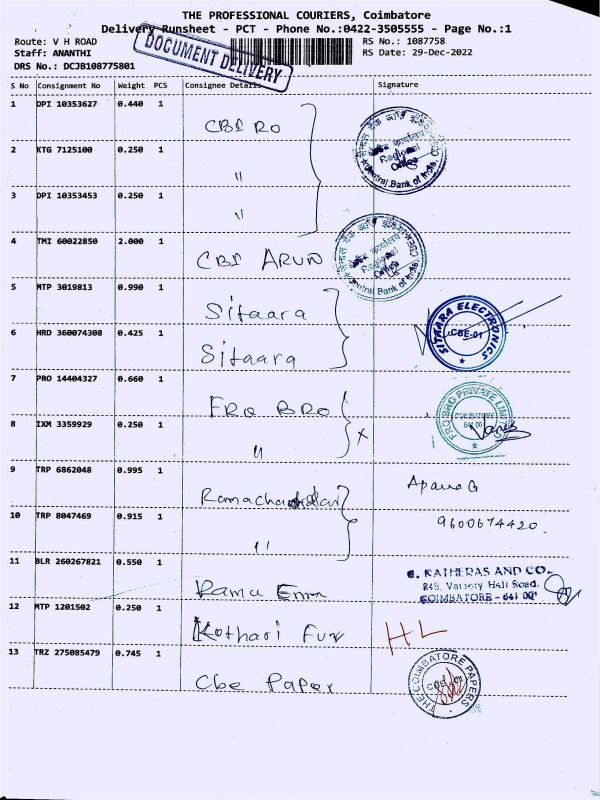 THE PROFESSIONAL COURIERS, Coimbatore
Delivery Runsheet - PCT - Phone No.:0422-3505555 - Page No.:1
Route: V H ROAD
RS No.: 1087758
Staff: ANANTHI
RS Date: 29-Dec-2022
DRS No.: DCJB108775801
DOCUMENT DELIVERY
S No Consignment No Weight PCS Consignee Details Signature
1 DPI 10353627 0.440 1
CBI RO
Regional Office
Central Bank of India
2 KTG 7125100 0.250 1
"
3 DPI 10353453 0.250 1
"
4 TMI 60022850 2.000 1
CBI ARUN
Regional Office
Central Bank of India
5 MTP 3019813 0.990 1
Sitaara
SITAARA ELECTRONICS
CBE-01
6 HRD 360074308 0.425 1
Sitaara
7 PRO 14404327 0.660 1
FRO BRO
FRO BRO PRIVATE LIMI
COIMBATORE
641 00
8 IXM 3359929 0.250 1
"
9 TRP 6862048 0.995 1
Aparna G
10 TRP 8047469 0.915 1
"
9600674420
11 BLR 260267821 0.550 1
Rama Emm
KATHERAS AND CO.,
Variety Hall Road,
COIMBATORE - 641 00
12 MTP 1201502 0.250 1
Kothari Fur
HL
13 TRZ 275085479 0.745 1
Cbe Paper
THE COIMBATORE PAPERS